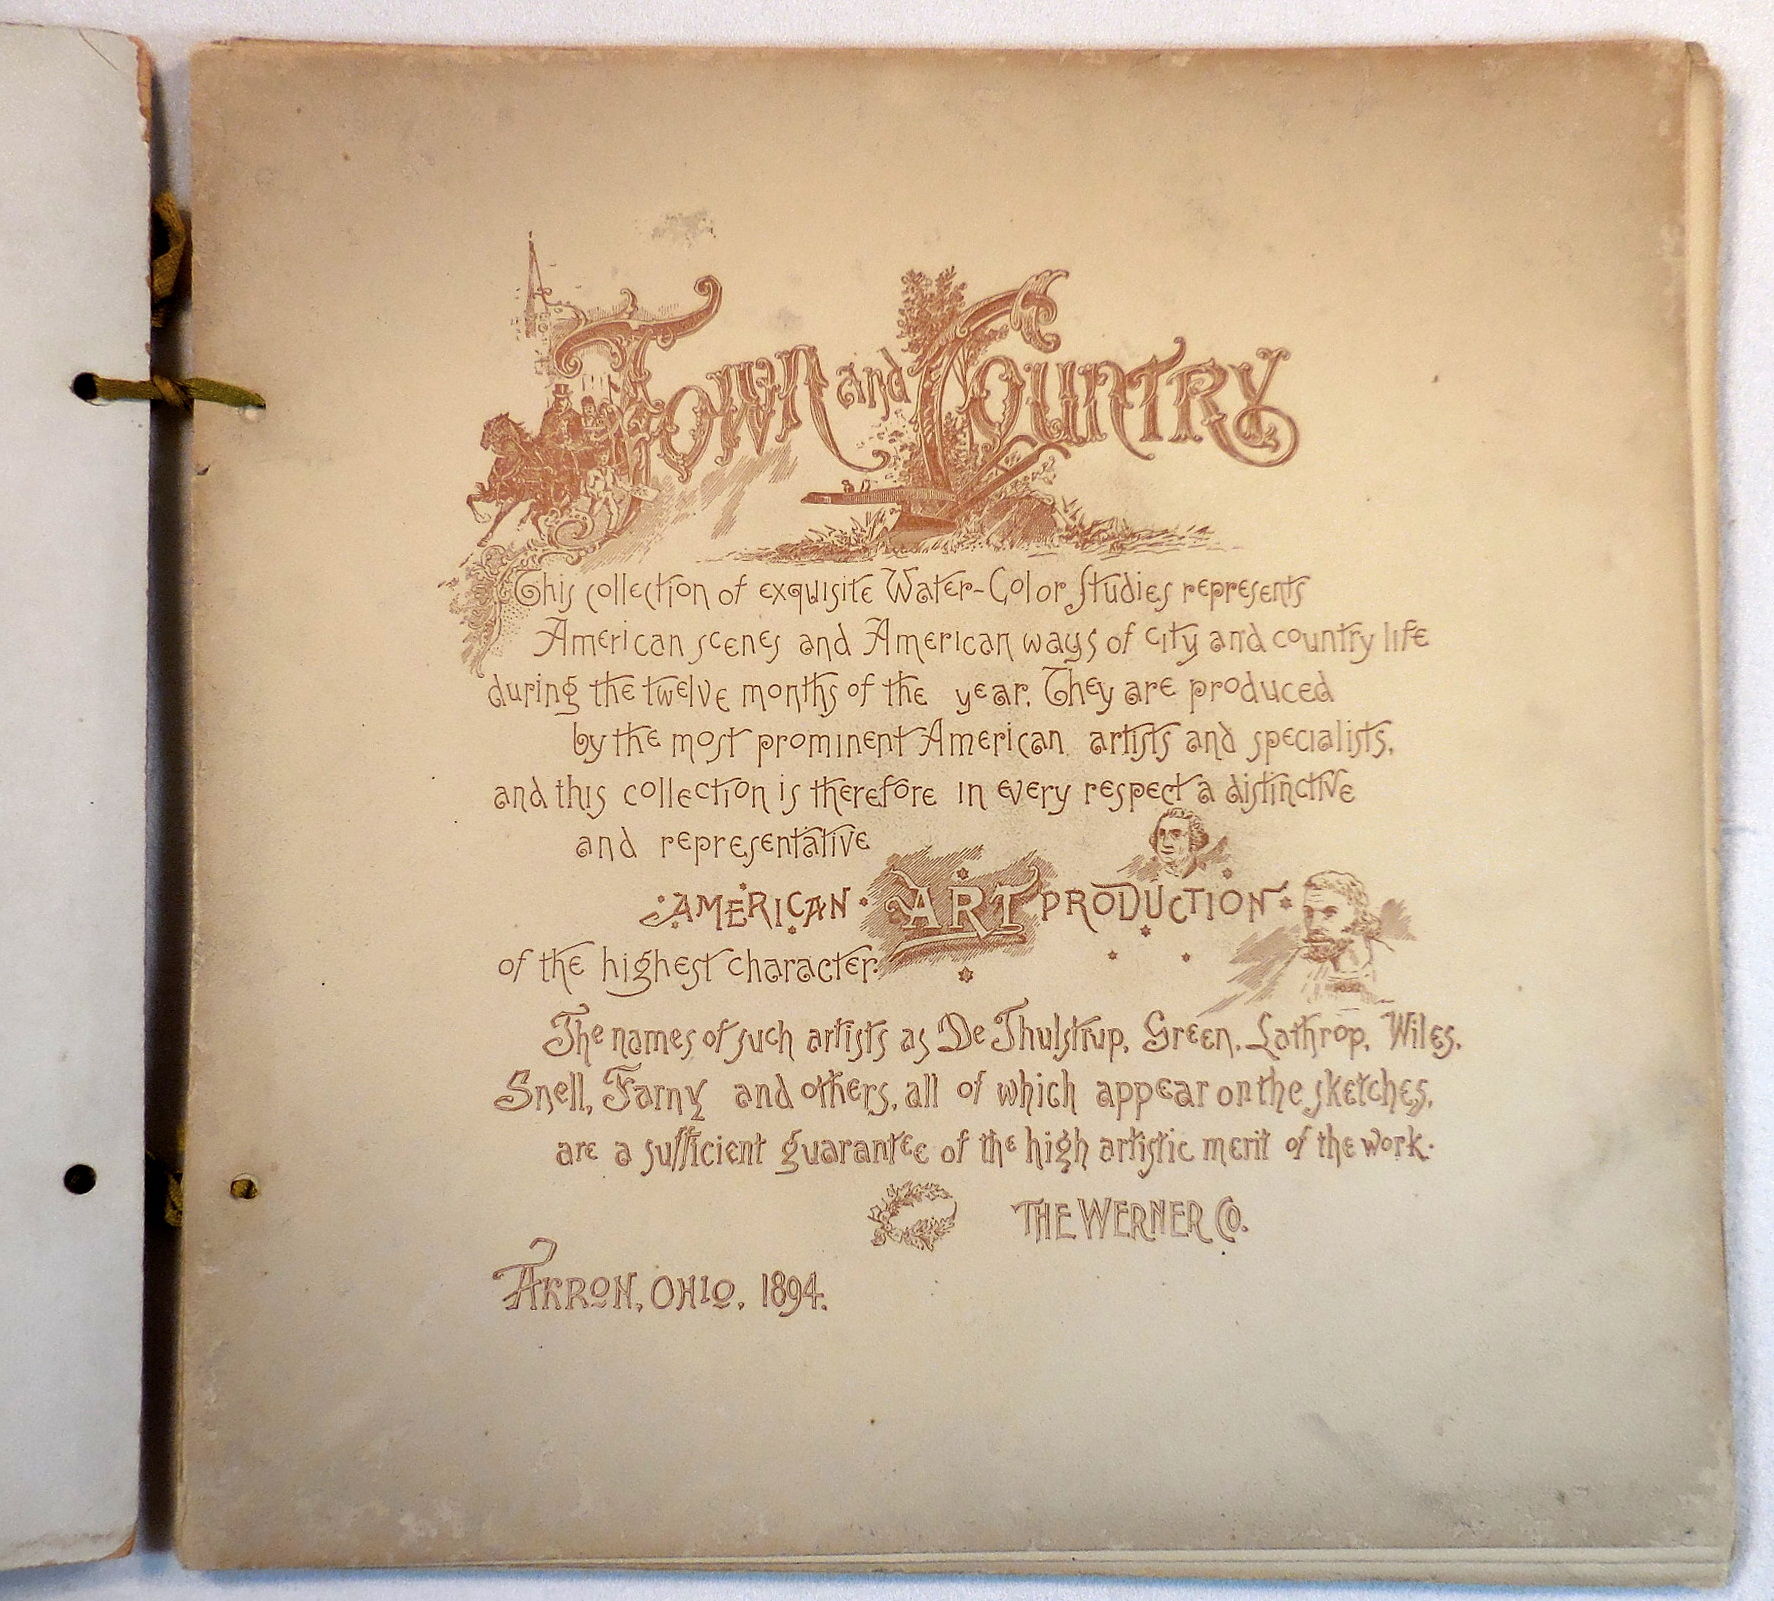 Town and Country
This collection of exquisite Water-Color Studies represents
American scenes and American ways of city and country life
during the twelve months of the year. They are produced
by the most prominent American artists and specialists,
and this collection is therefore in every respect a distinctive
and representative
·AMERICAN· ART PRODUCTION
of the highest character.
The names of such artists as De Thulstrup, Green, Lathrop, Wiles,
Snell, Farny and others, all of which appear on the sketches,
are a sufficient guarantee of the high artistic merit of the work.
THE WERNER CO.
AKRON, OHIO, 1894.